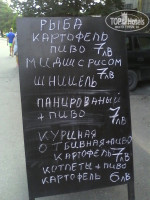 TopHotels
РЫБА
КАРТОФЕЛЬ
ПИВО 7ЛВ
МИДИИ С РИСОМ
7ЛВ
ШНИЦЕЛЬ
ПАНИРОВАНЫЙ
+ ПИВО 7ЛВ
КУРИНАЯ
ОТБИВНАЯ+ПИВО
КАРТОФЕЛЬ 7ЛВ
КОТЛЕТЫ+ПИВО
КАРТОФЕЛЬ 6ЛВ